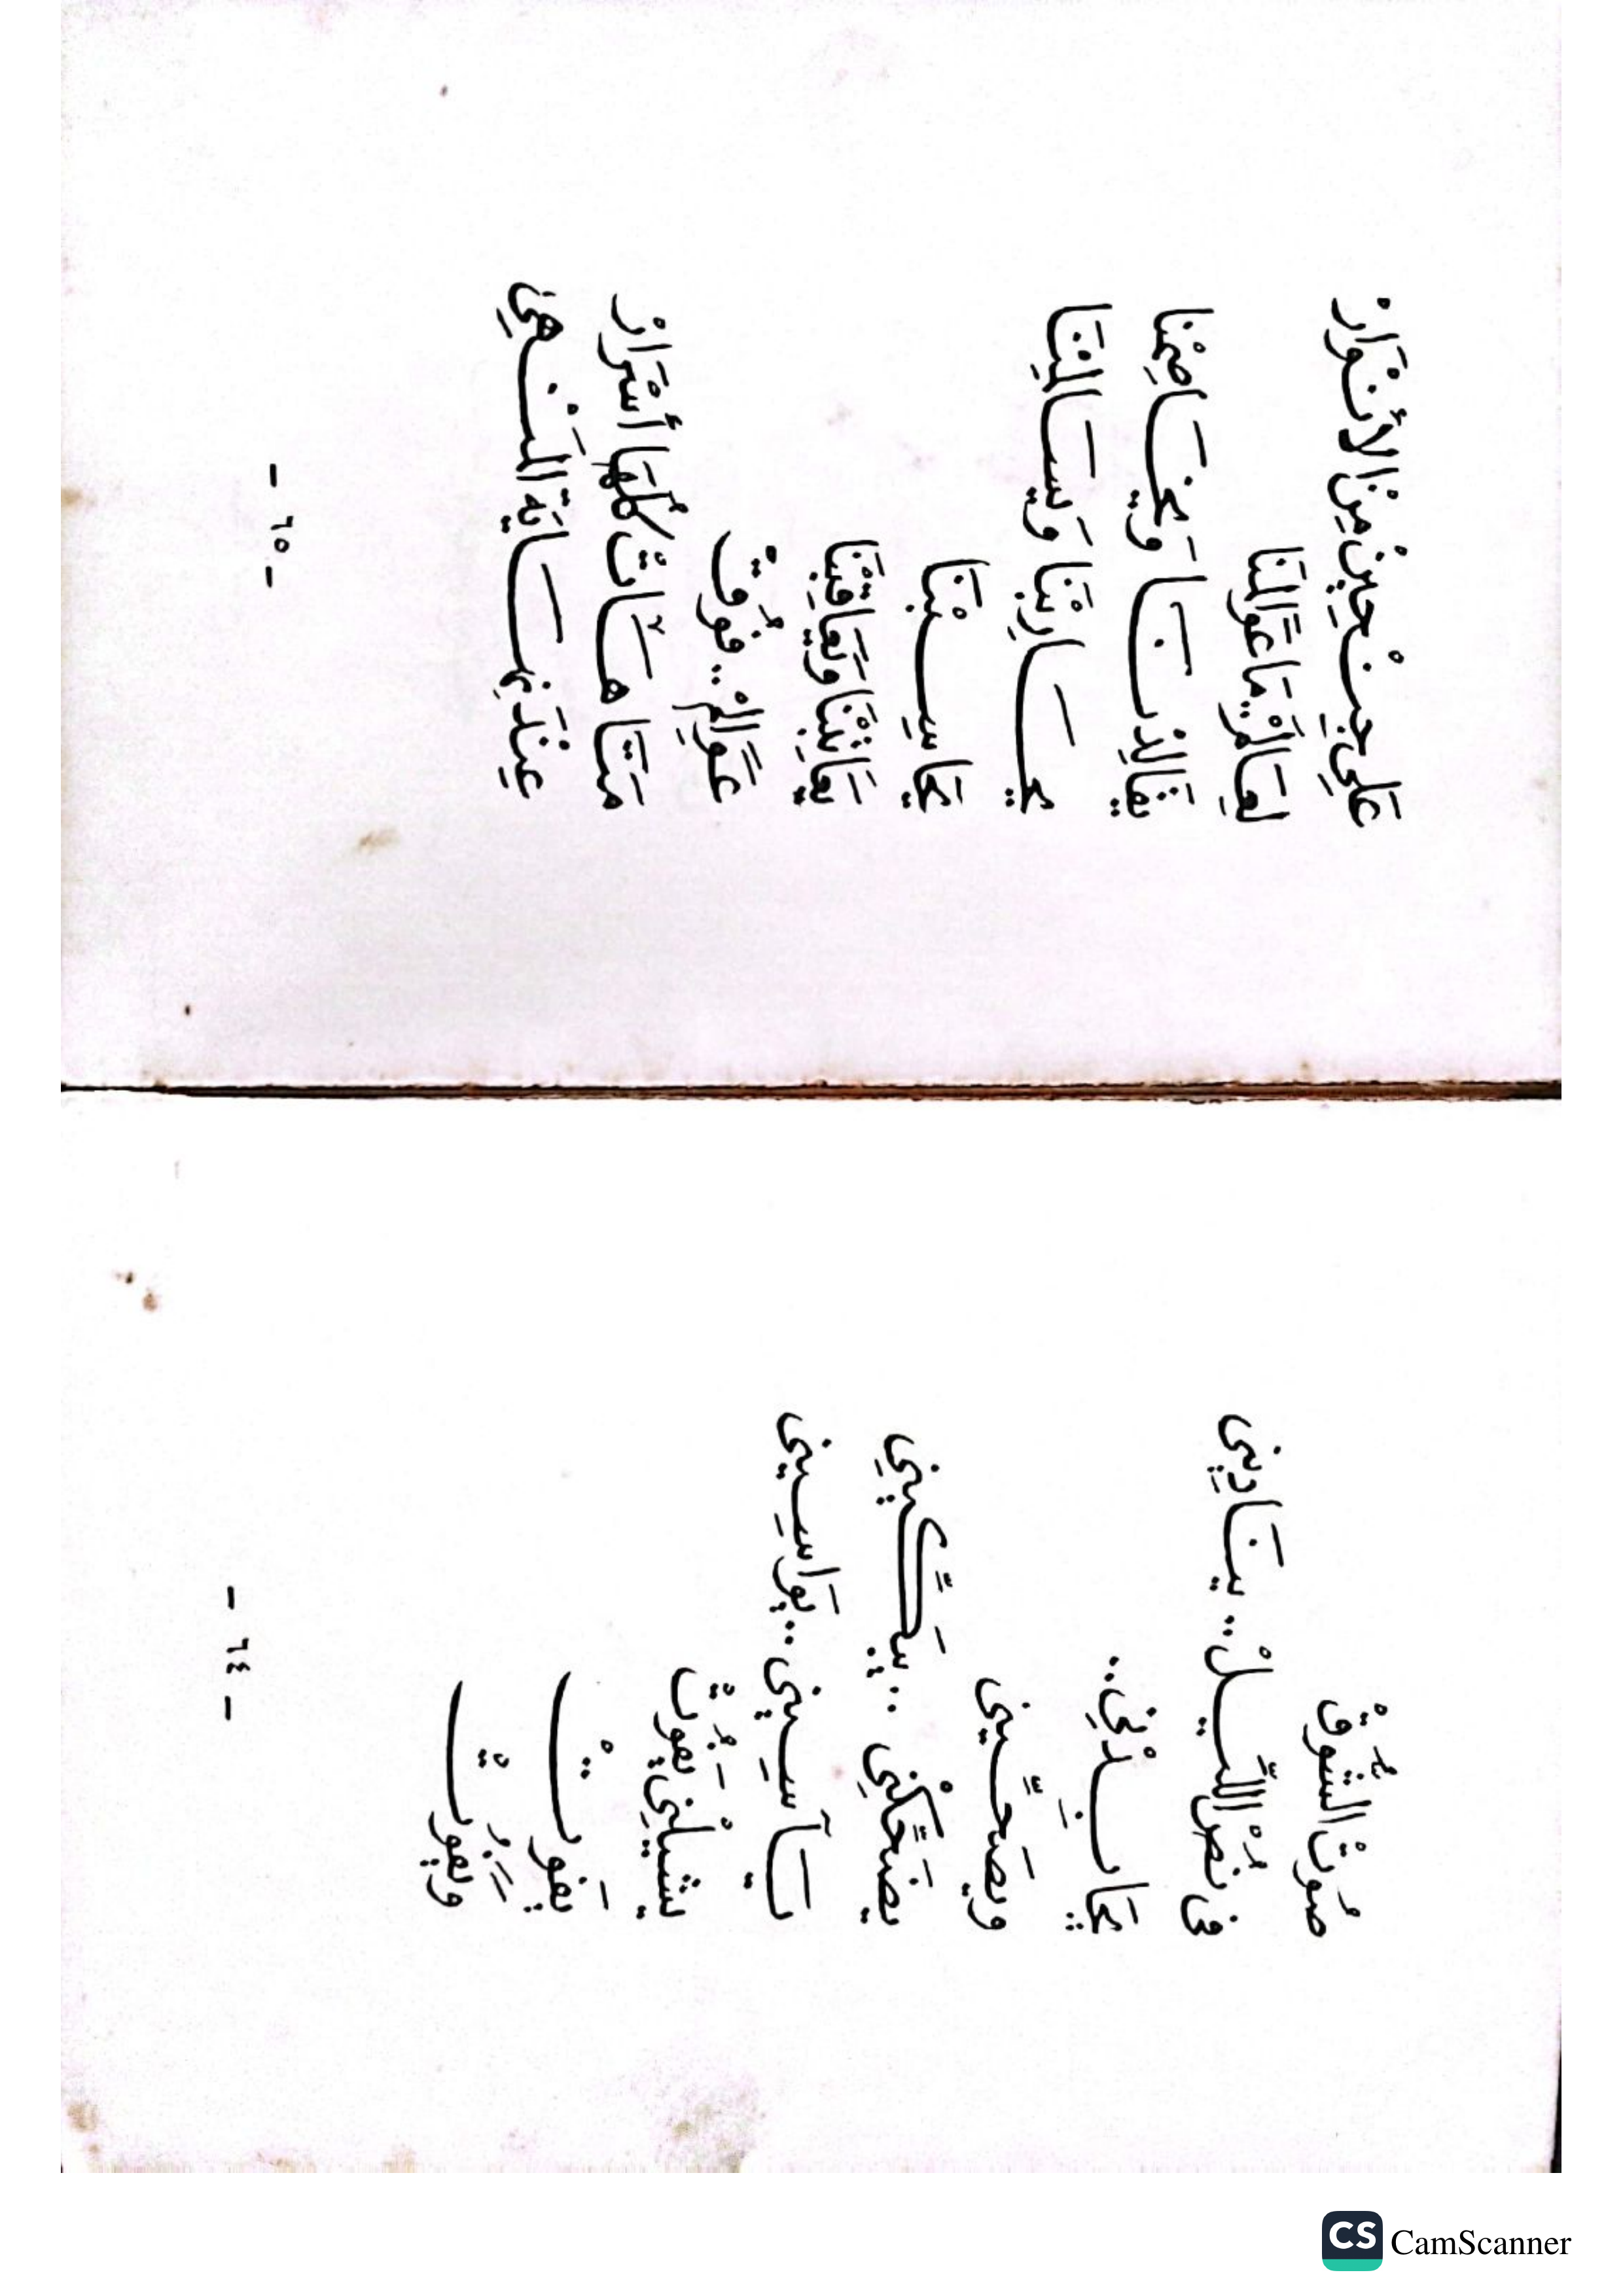 صُوتْ الشُّوقْ
فى نُصْ اللَّيلْ .. ينَادِينِى
يعَانِدْنِى ..
ويصَحِّينِى
يضَحَّكْنِى .. يبَكِّينِى
يآسِينِى .. يوَاسِينِى
يشيلْنِى يفُوتْ
يفَوتْ
ويفَوتْ
- ٦٤ -
عَلَى جِنْحِينْ مِنْ الأنْوَارْ
لِعَالَمْ
وَيخَاصِمْنَا
يحَارِبْنَا وَيسَالِمْنَا
يحَاسِبْنَا
يعَاتِبْنَا وَيعَاقِبْنَا
عَوَالِمْ .. فُوقْ
مَتَاهَاتْ كُلَّهَا أسْرَارْ
- ٦٥ -
CamScanner